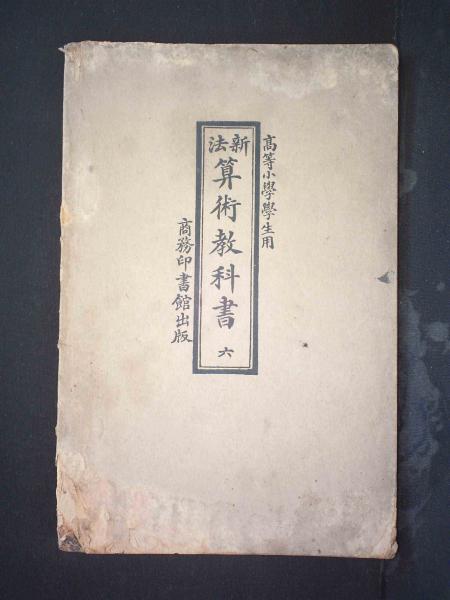 高等小學學生用
新法
算術教科書 六
商務印書館出版